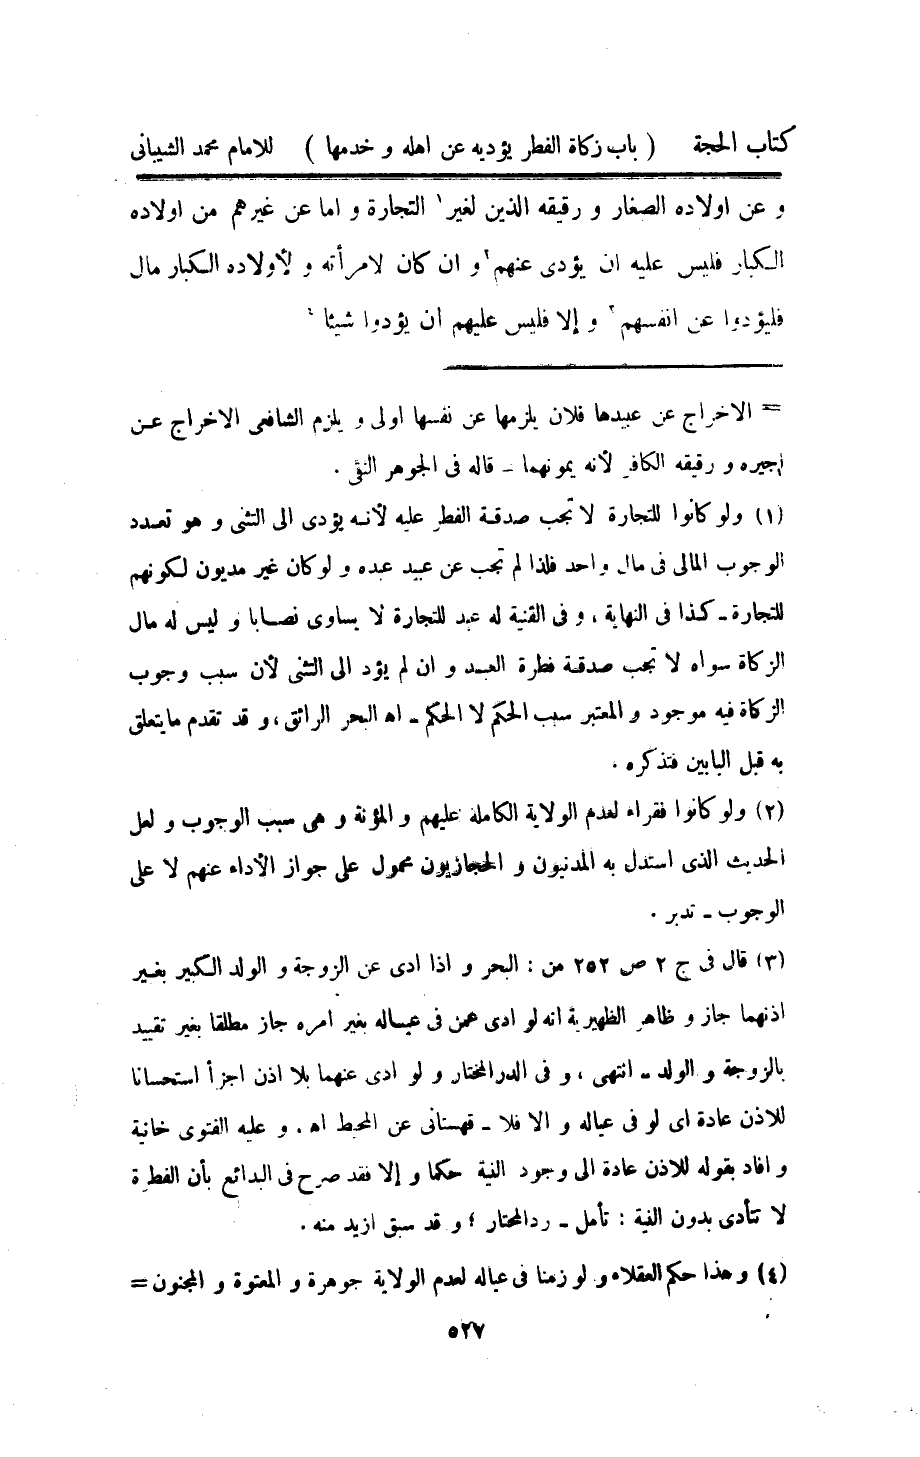 كتاب الحجة ( باب زكاة الفطر يؤديه عن اهله و خدمها ) للامام محمد الشيبانى
و عن اولاده الصغار و رقيقه الذين لغير ١ التجارة و اما عن غيرهم من اولاده
الكبار فليس عليه ان يؤدى عنهم ٢ و ان كان لامرأته و لأولاده الكبار مال
فليؤدوا عن انفسهم ٣ و إلا فليس عليهم أن يؤدوا شيئا ٤
= الاخراج عن عبيدها فلان يلزمها عن نفسها اولى و يلزم الشافعى الاخراج عن
اجيره و رقيقه الكافر لأنه يمونهما ـ قاله فى الجوهر النقى .
(١) ولو كانوا للتجارة لا تجب صدقة الفطر عليه لأنه يؤدى الى الثنى و هو تعدد
الوجوب المالى فى مال واحد فلذا لم تجب عن عبيد عبده و لو كان غير مديون لكونهم
للتجارة ـ كذا فى النهاية ، و فى القنية له عبد للتجارة لا يساوى نصابا و ليس له مال
الزكاة سواه لا تجب صدقة فطرة العبد و ان لم يؤد الى الثنى لأن سبب وجوب
الزكاة فيه موجود و المعتبر سبب الحكم لا الحكم ـ اه البحر الرائق ، و قد تقدم ما يتعلق
به قبل البابين فتذكره .
(٢) ولو كانوا فقراء لعدم الولاية الكاملة عليهم و المؤنة و هى سبب الوجوب و لعل
الحديث الذى استدل به المدنيون و الحجازيون محمول على جواز الأداء عنهم لا على
الوجوب ـ تدبر .
(٣) قال فى ج ٢ ص ٢٥٢ من : البحر و اذا ادى عن الزوجة و الولد الكبير بغير
اذنهما جاز و ظاهر الظهيرية انه لو ادى عمن فى عياله بغير امره جاز مطلقا بغير تقييد
بالزوجة و الولد ـ انتهى ، و فى الدر المختار و لو ادى عنهما بلا اذن اجزأ استحسانا
للاذن عادة اى لو فى عياله و الا فلا ـ قهستانى عن المحيط اه . و عليه الفتوى خانية
و افاد بقوله للاذن عادة الى وجود النية حكما و إلا فقد صرح فى البدائع بأن الفطرة
لا تتأدى بدون النية : تأمل ـ رد المحتار ؛ و قد سبق ازيد منه .
(٤) و هذا حكم العقلاء و لو زمنا فى عياله لعدم الولاية جوهرة و المعتوة و المجنون =
٥٢٧